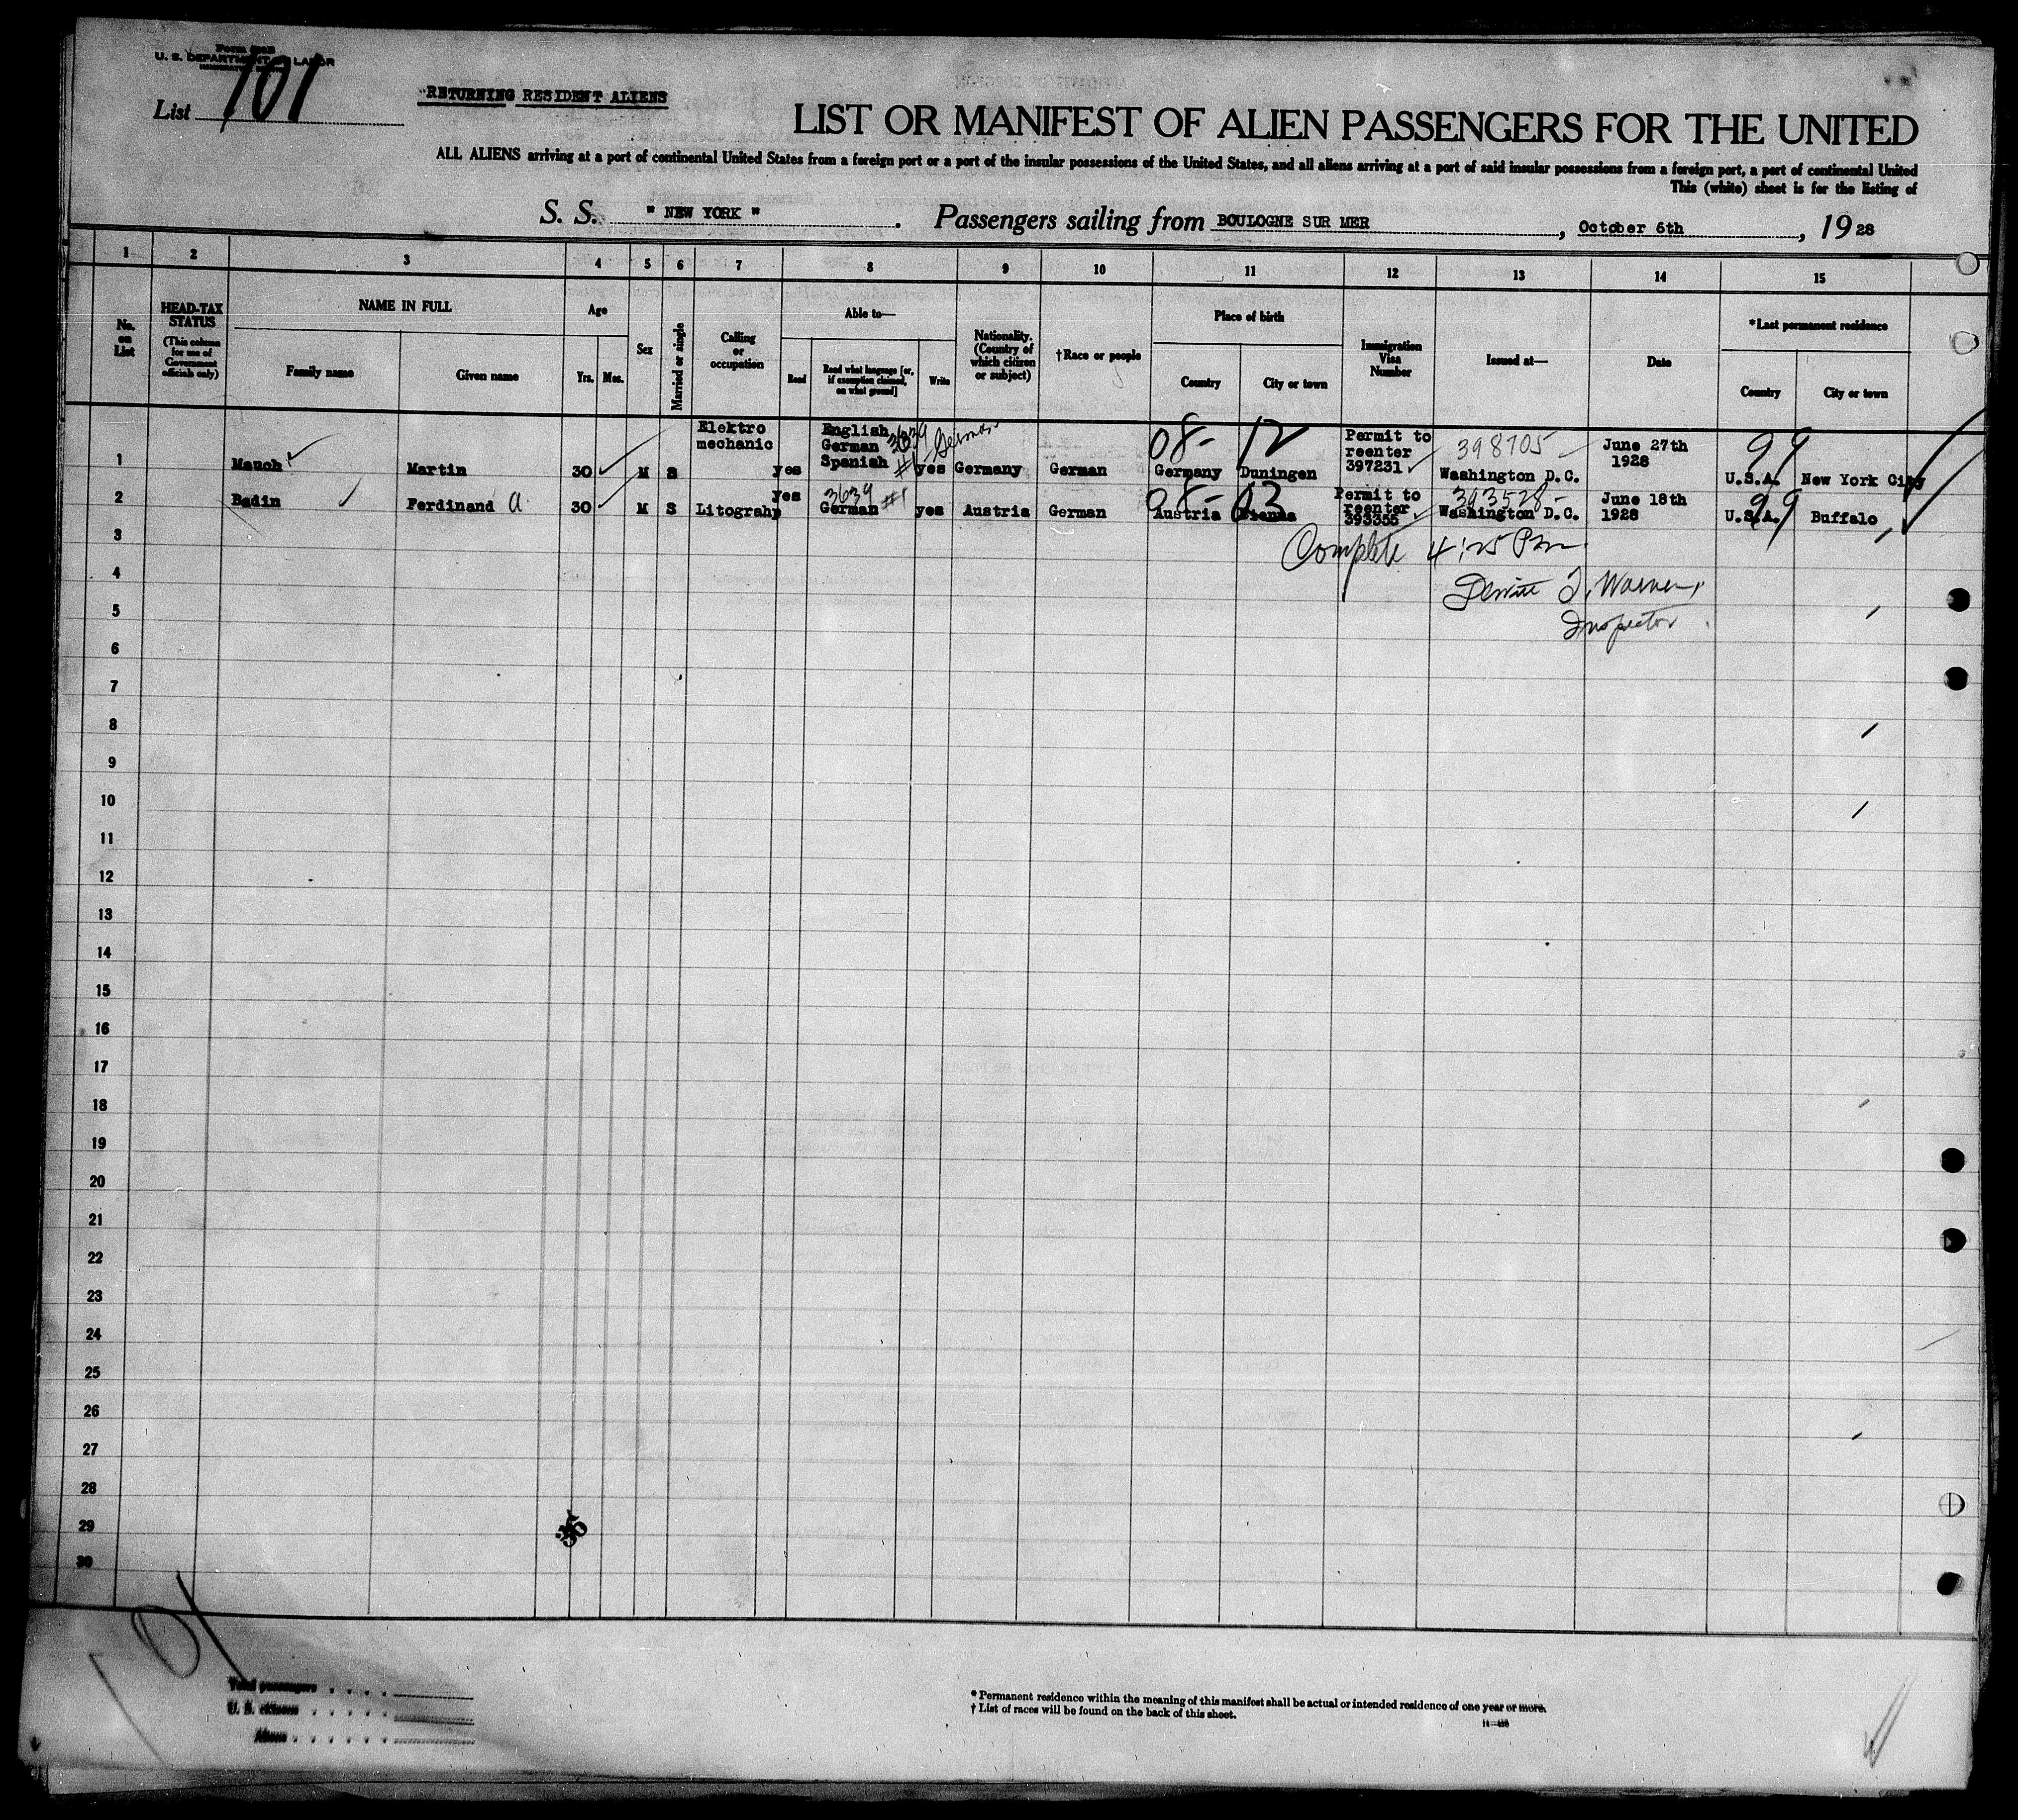 U. S. DEPARTMENT OF LABOR
List 101
RETURNING RESIDENT ALIENS
LIST OR MANIFEST OF ALIEN PASSENGERS FOR THE UNITED
ALL ALIENS arriving at a port of continental United States from a foreign port or a port of the insular possessions of the United States, and all aliens arriving at a port of said insular possessions from a foreign port, a port of continental United
This (white) sheet is for the listing of
S. S. " NEW YORK " . Passengers sailing from BOULOGNE SUR MER , October 6th , 1928
1 2 3 4 5 6 7 8 9 10 11 12 13 14 15
No. on List
HEAD-TAX STATUS
(This column for use of Government officials only)
NAME IN FULL
Family name
Given name
Age
Yrs. Mos.
Sex
Married or single
Calling or occupation
Able to—
Read
Read what language [or, if exemption claimed, on what ground]
Write
Nationality. (Country of which citizen or subject)
† Race or people
Place of birth
Country
City or town
Immigration Visa Number
Issued at—
Date
*Last permanent residence
Country
City or town
1 Mauch Martin 30 M S Elektro mechanic yes English German Spanish 3639 #1 German yes Germany German 08- 12 Germany Duningen Permit to reenter 397231 398705 Washington D.C. June 27th 1928 99 U.S.A. New York City
2 Badin Ferdinand A 30 M S Litograhp yes 3639 #1 German yes Austria German 08- 03 Austria Vienna Permit to reenter 393355 393528- Washington D.C. June 18th 1928 99 U.S.A. Buffalo
3 Complete 4:25 Pm
4 Dewitt T. Warner,
5 Inspector
6
7
8
9
10
11
12
13
14
15
16
17
18
19
20
21
22
23
24
25
26
27
28
29
30
101
Total passengers
U. S. citizens
Aliens
* Permanent residence within the meaning of this manifest shall be actual or intended residence of one year or more.
† List of races will be found on the back of this sheet.